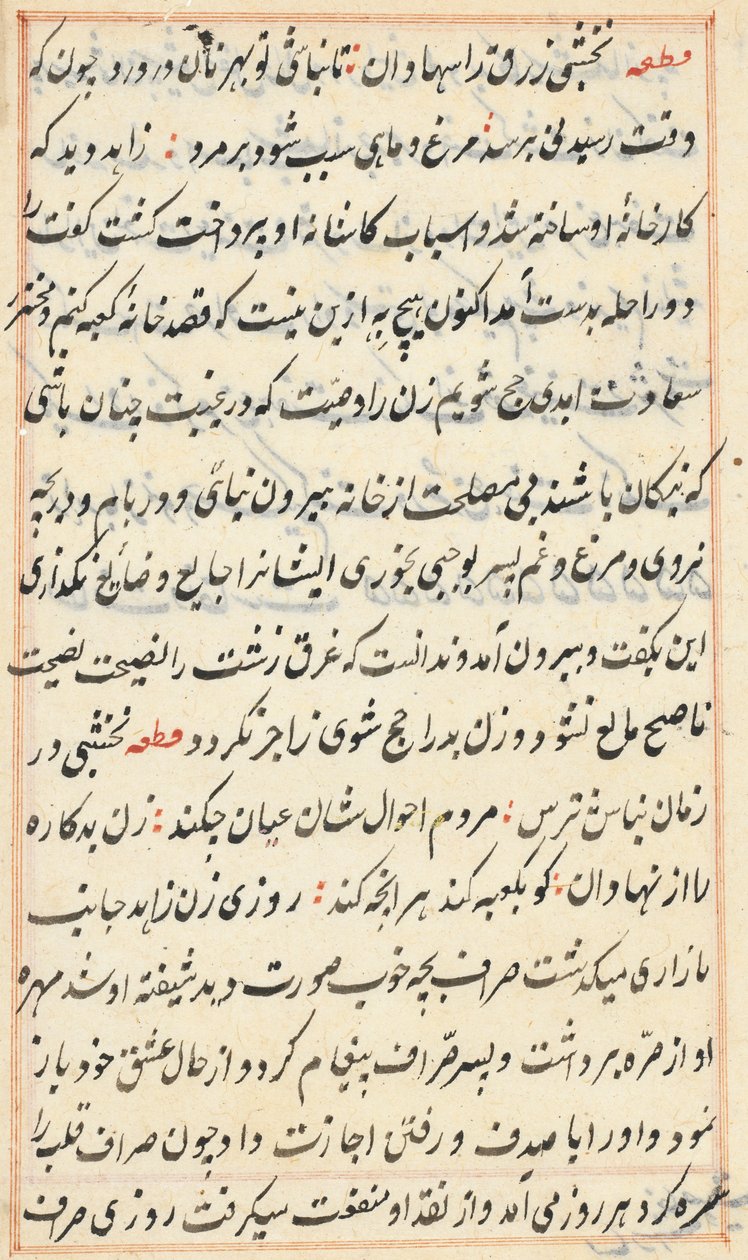 قطعه نخشبی زرق را سها دان : تا نباشی تو بهر نان در ورد چون که
وقت رسیدنی برسد : مرغ و ماهی سبب شود بر مرد : زاهد دید که
کارخانهٔ او ساخته شد و اسباب کاشانه او پرداخت گشت گفت را
دوراحله بدست آمد اکنون هیچ به ازین نیست که قصد خانهٔ کعبه کنم و
سعادت ابدی حج شویم زن را وصیّت که در غیبت چنان باشی
که نیکان باشند بی مصلحت از خانه بیرون نیائی و در بام و دریچه
نروی و مرغ و غم پسر بوجبی بخوری ایشانرا جایع و ضایع نگذاری
این بگفت و بیرون آمد و ندانست که عرق زشت را نصیحت نصیحت
ناصح مانع نشود و زن بد را حج شوی زاجر نگردد قطعه نخشبی در
زمان نباس ترس : مردم احوال شان عیان چکند : زن بدکاره
را از نهادان : کو بکعبه کند هر انچه کند : روزی زن زاهد جانب
بازاری میگذشت صراف بچه خوب صورت دید شیفته او شد مهره
او از حرّه برداشت و پسر صرّاف پیغام کرد و از حال عشق خود باز
نمود و او را با صدف و رفتن اجازت داد چون صراف قلب را
سره کرد هر روز می آمد و از نقد او منفعت میگرفت روزی صراف